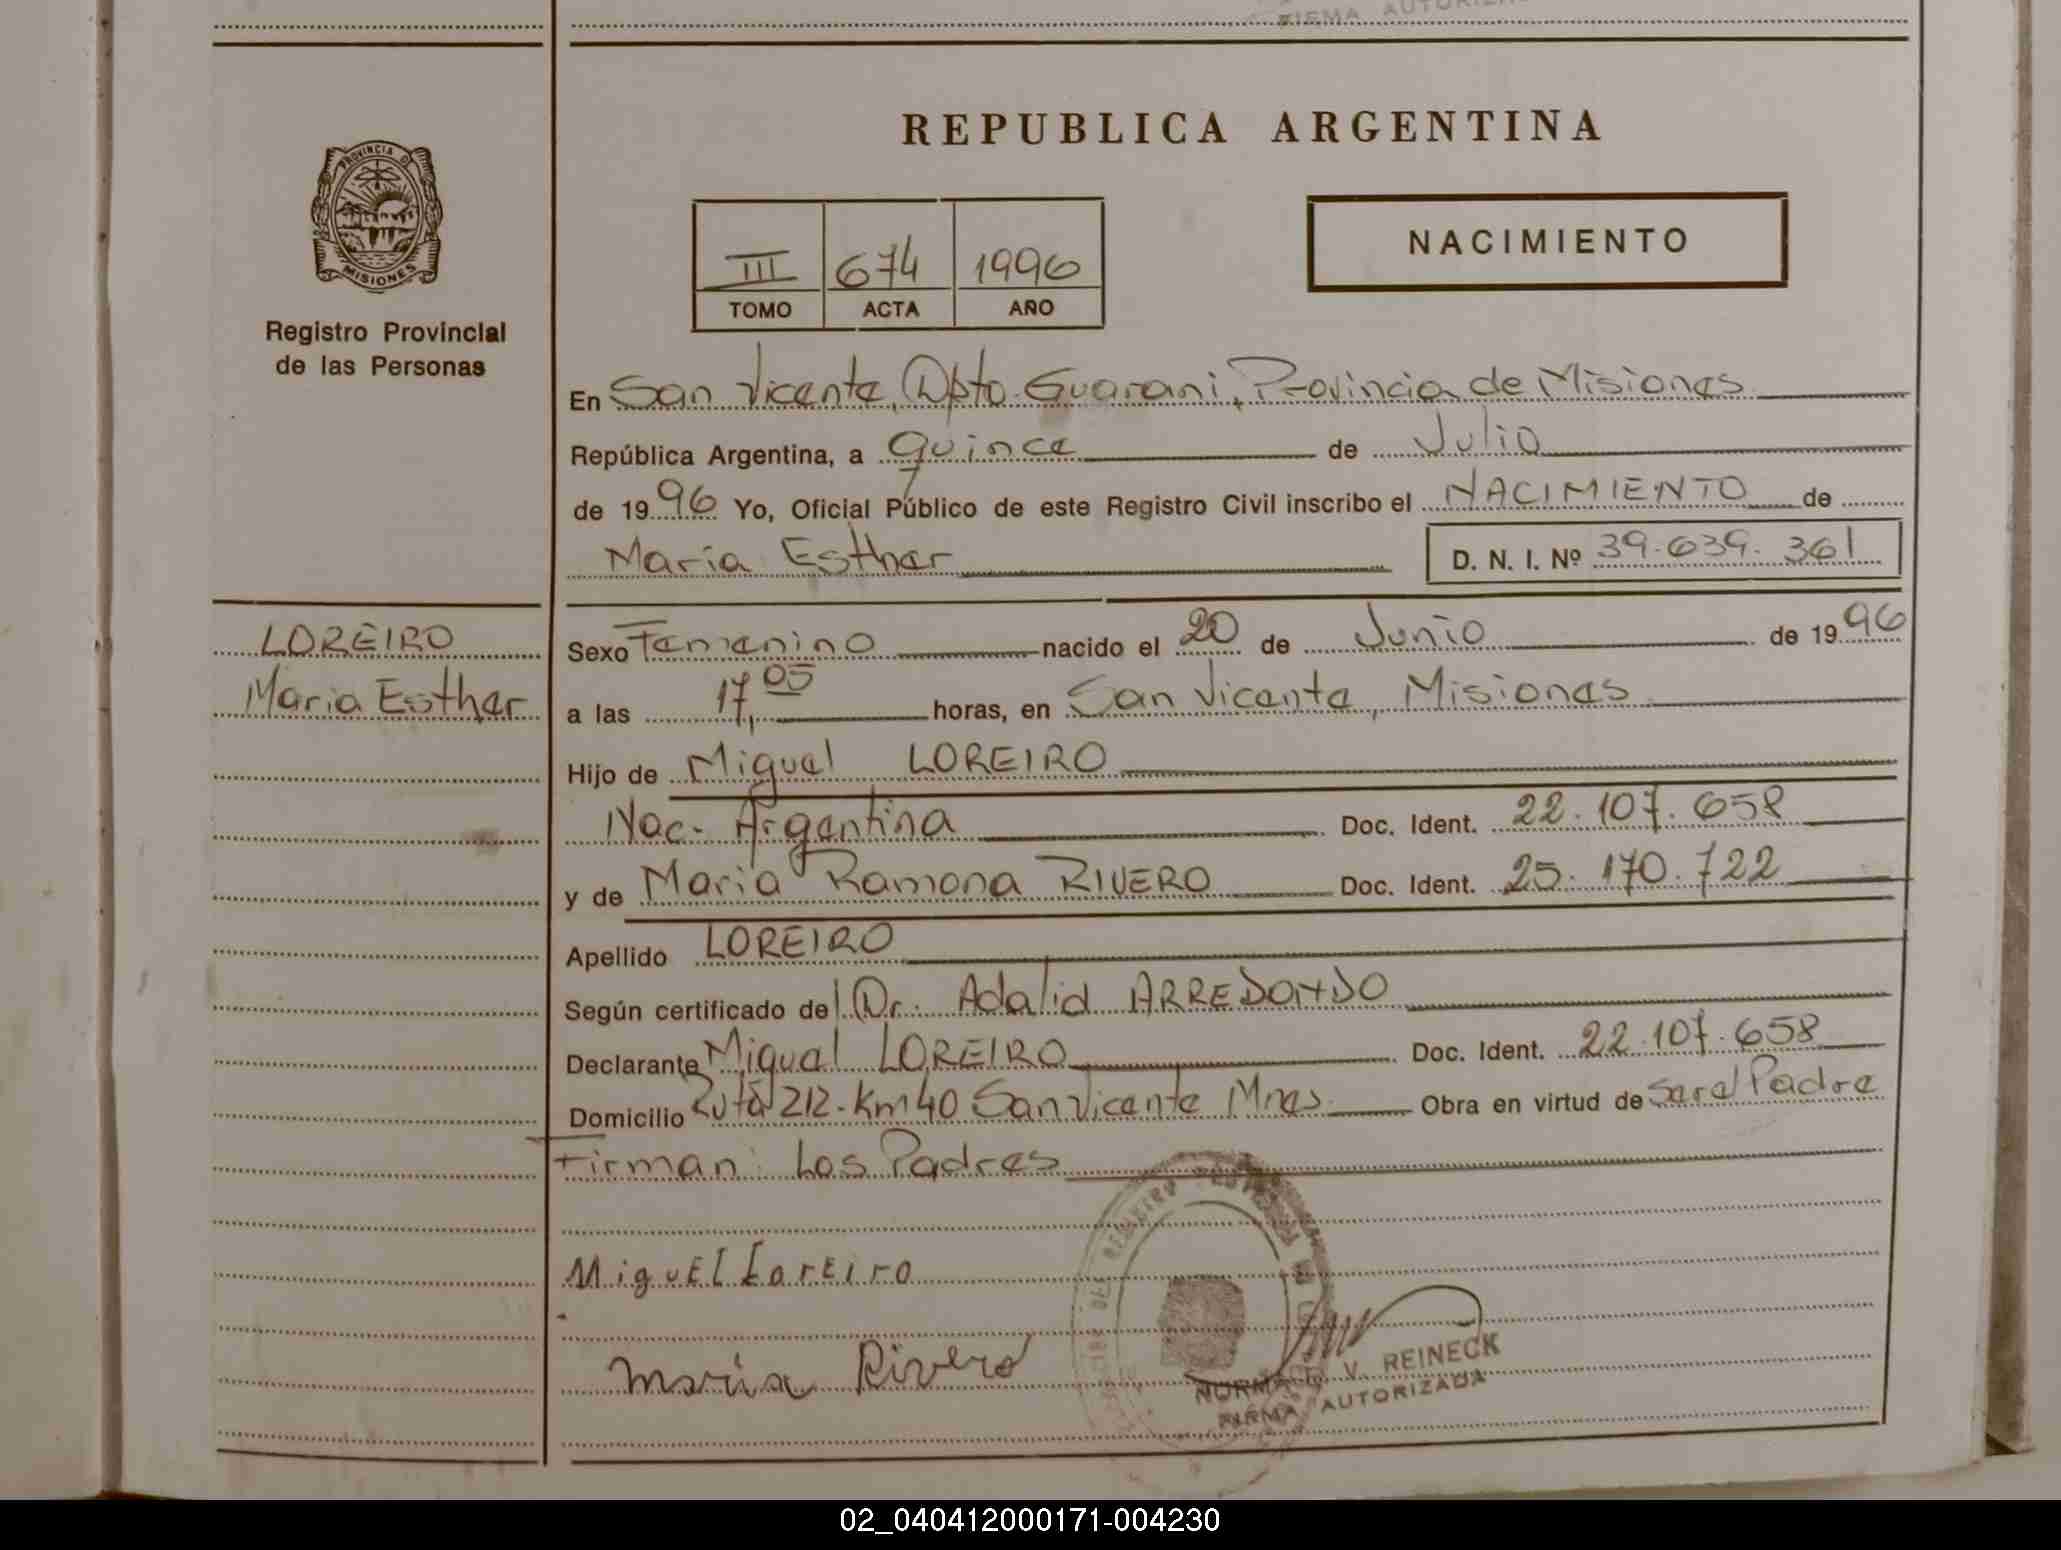 FIRMA AUTORIZADA
REPUBLICA ARGENTINA
PROVINCIA D
MISIONES
Registro Provincial
de las Personas
III 674 1996
TOMO ACTA AÑO
NACIMIENTO
En San Vicente, Dpto. Guarani, Provincia de Misiones
República Argentina, a quince de Julio
de 1996 Yo, Oficial Público de este Registro Civil inscribo el NACIMIENTO de
Maria Esther D. N. I. Nº 39.639.361
LOREIRO
Maria Esther
Sexo Femenino nacido el 20 de Junio de 1996
a las 17,05 horas, en San Vicente, Misiones
Hijo de Miguel LOREIRO
Nac. Argentina Doc. Ident. 22.107.658
y de Maria Ramona RIVERO Doc. Ident. 25.170.722
Apellido LOREIRO
Según certificado del Dr. Adalid ARREDONDO
Declarante Miguel LOREIRO Doc. Ident. 22.107.658
Domicilio Ruta 212-Km40 San Vicente Mnes. Obra en virtud de Ser el Padre
Firman: Los Padres
MiguEl LorEiro
Maria Rivero
NORMA V. REINECK
FIRMA AUTORIZADA
02_040412000171-004230